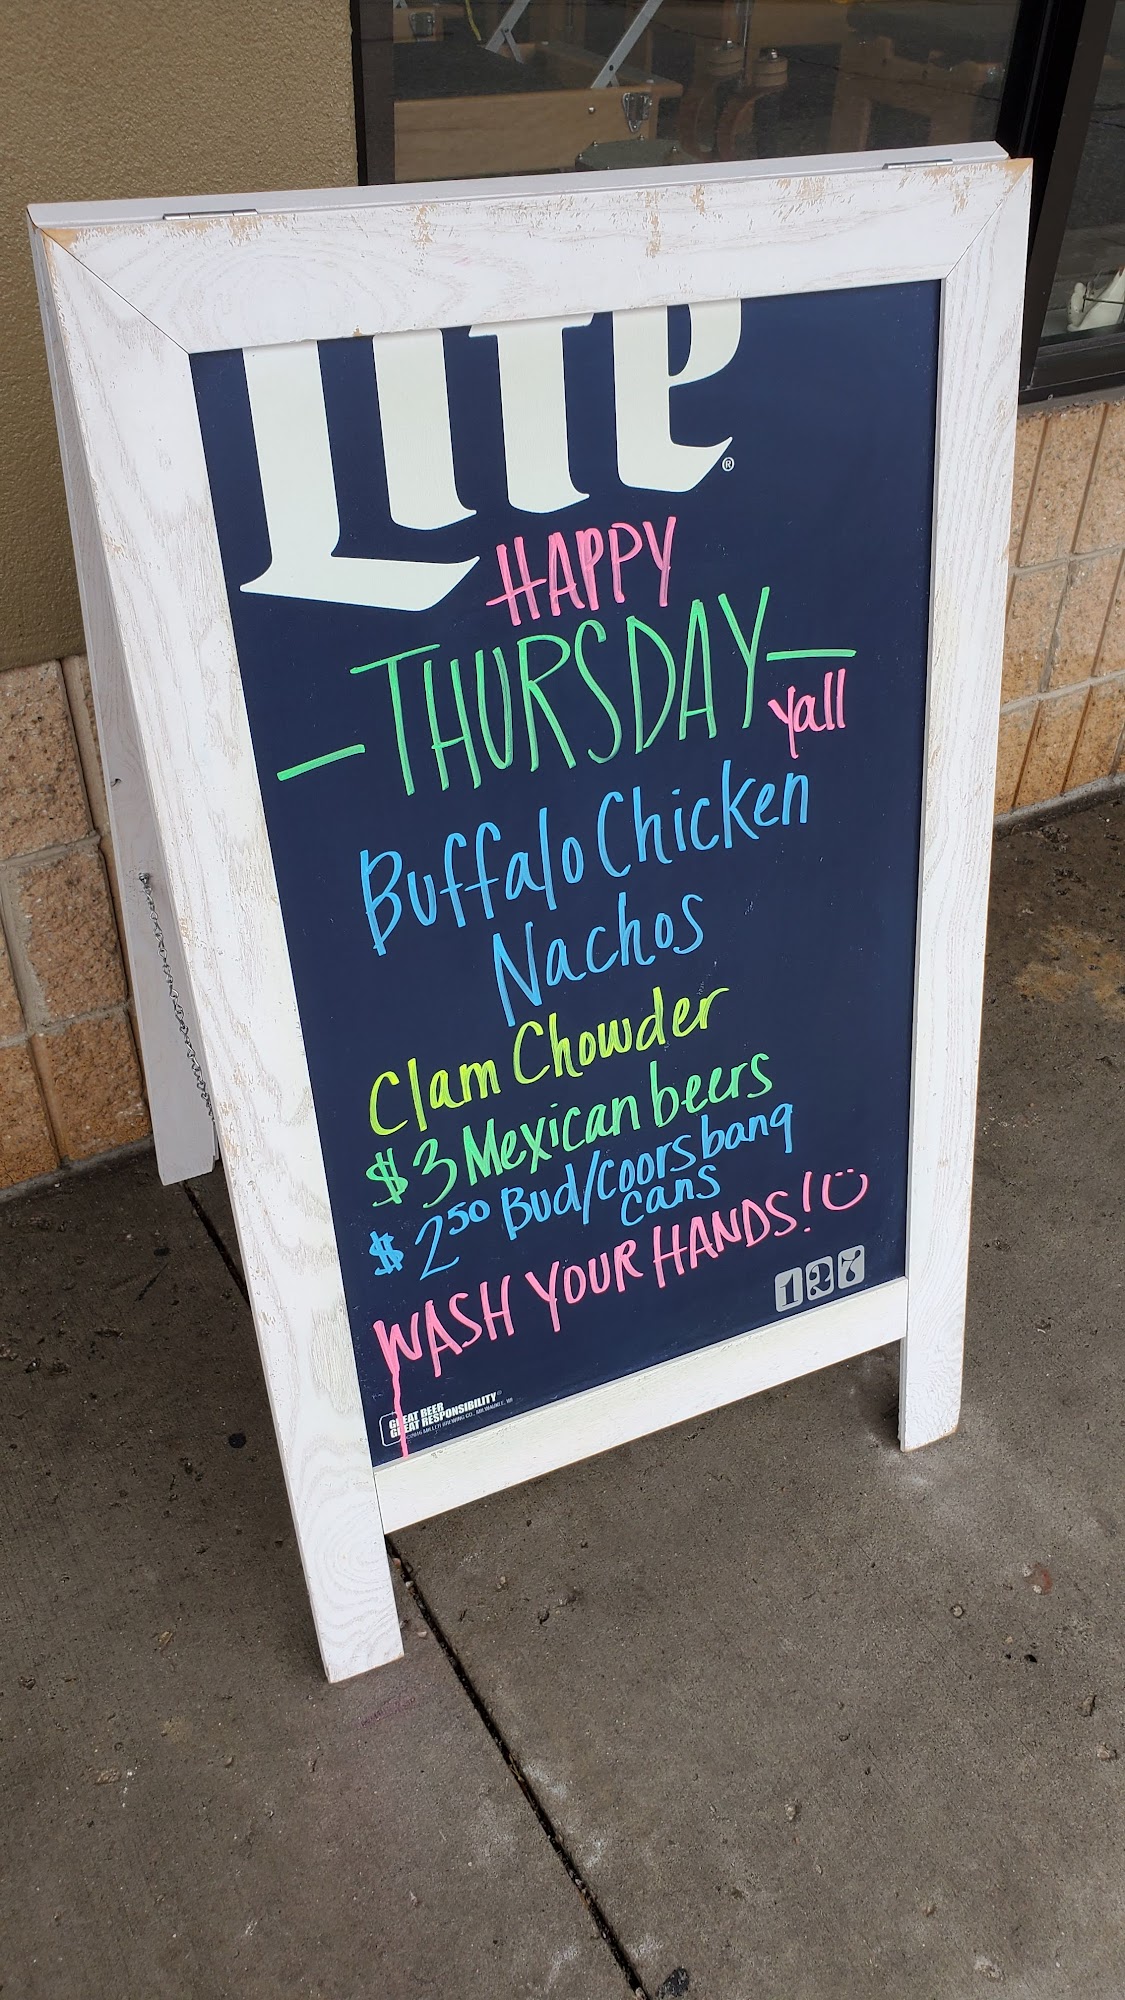 Lite®
HAPPY
-THURSDAY-
yall
Buffalo Chicken
Nachos
Clam Chowder
$3 Mexican beers
$2⁵⁰ Bud/Coors bang
cans
WASH YOUR HANDS! Ü
127
GREAT BEER
GREAT RESPONSIBILITY®
MILLER BREWING CO., MILWAUKEE, WI